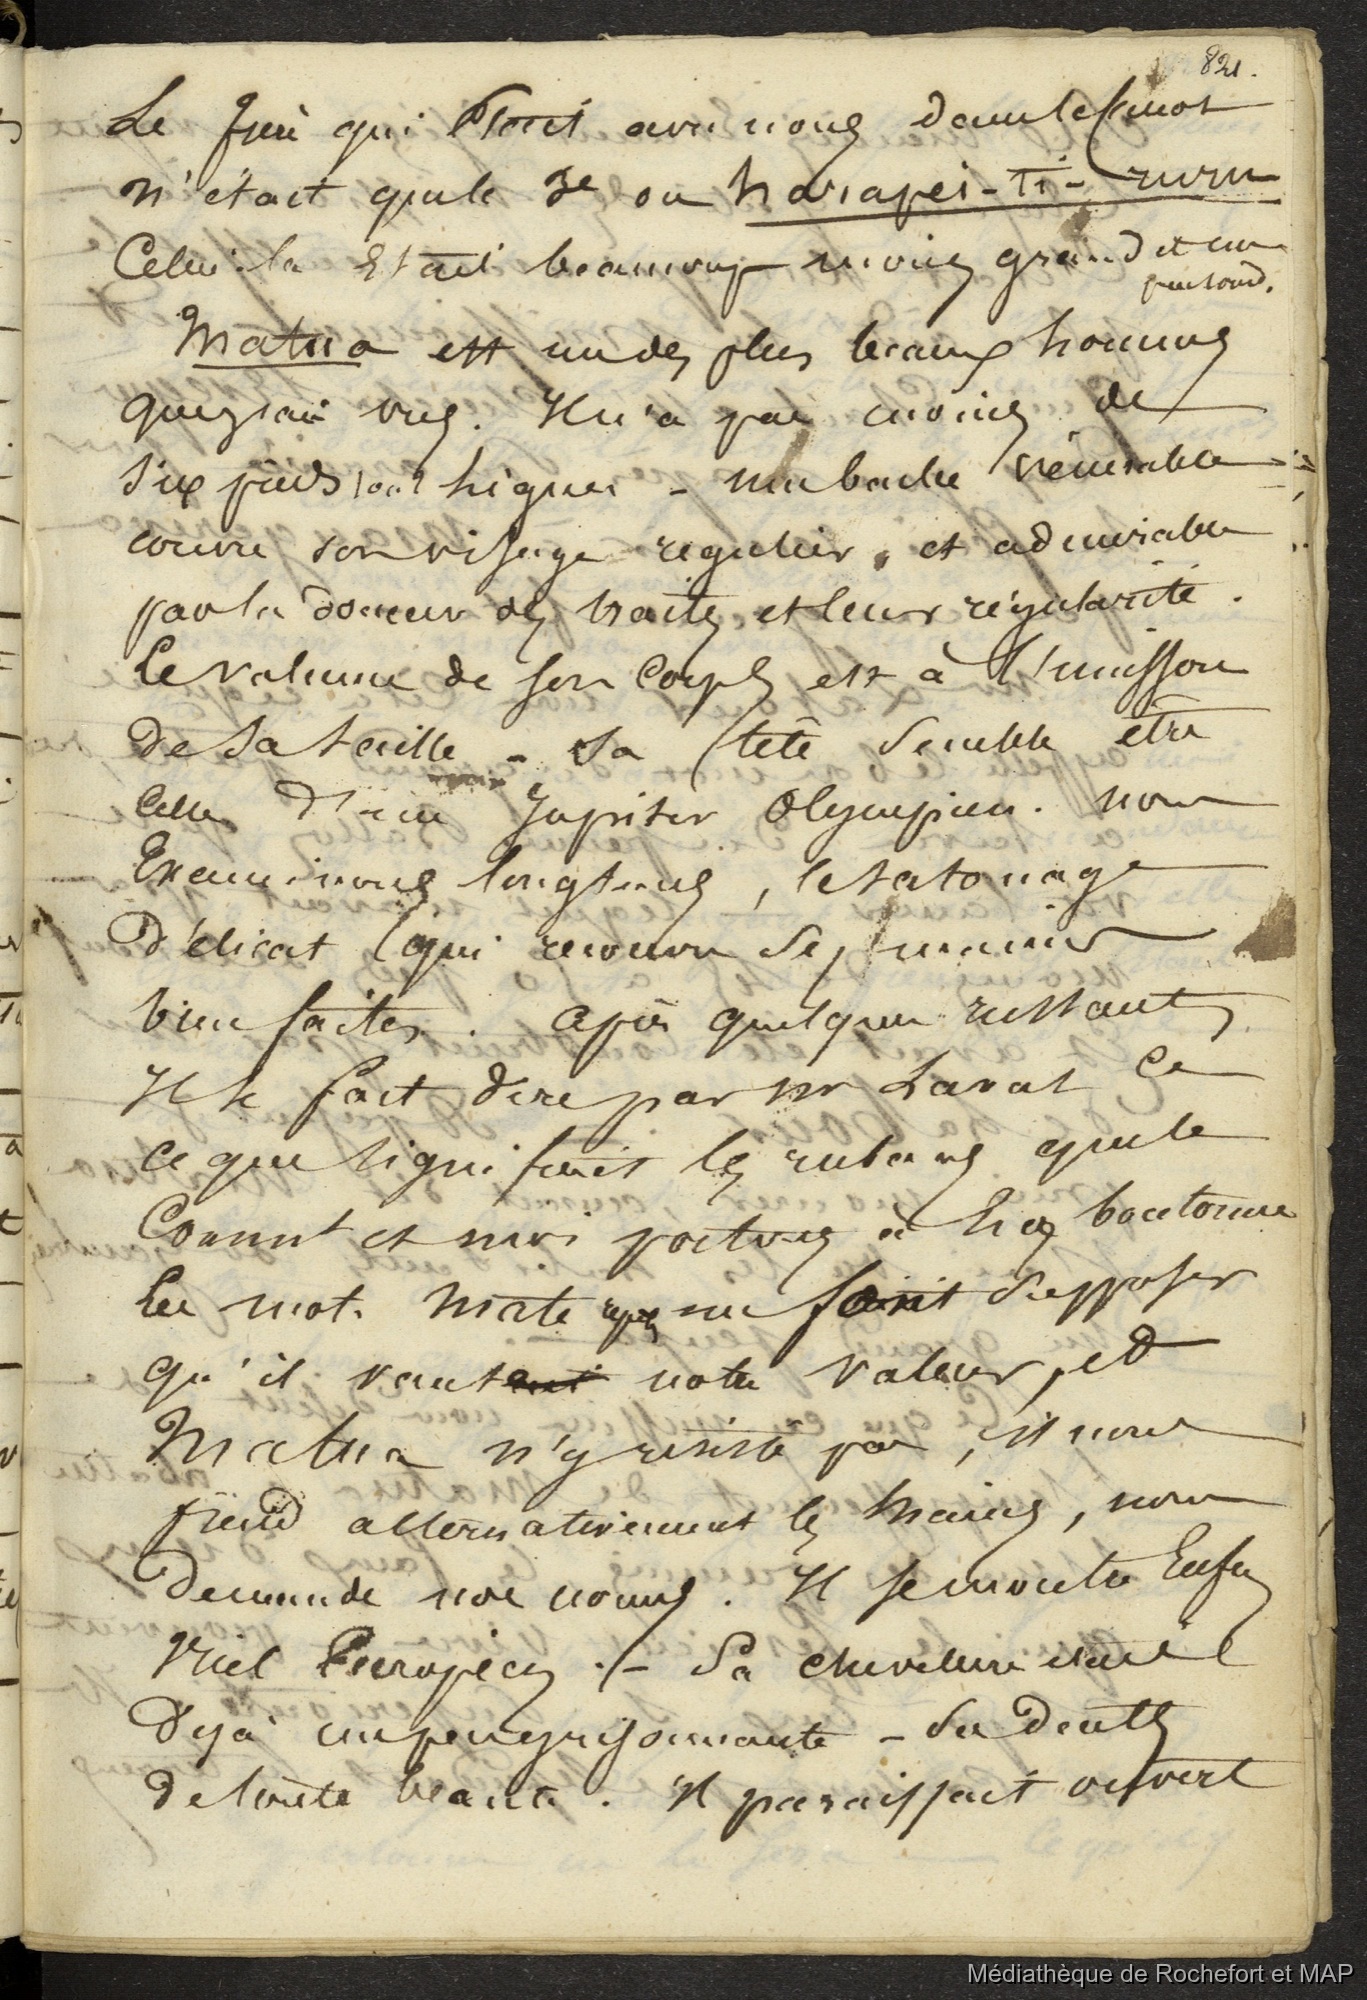 821.
Le frère qui était avec nous dans le canot
n'était que le 3e ou harapei-ti-ruru
Celui-la était beaucoup moins grand et un
peu sourd.
Matua est un des plus beaux hommes
que j'aie vus. Il n'a pas moins de
six pieds lignes - une barbe vénérable
couvre son visage regulier, et admirable
par la douceur des traits et leur régularité.
Le volume de son corps est à l'unisson
de sa taille - sa tête semble être
celle d'un Jupiter Olympien. nous
Examinons longtems, le tatouage
délicat qui recouvre ses mains
bien faites. après quelques instants
Il se fait dire par mr Laval ce
ce que signifiait les rubans que le
Commt et moi portons à nos boutonnie
Le mot mate me fait supposer
qu'il vante notre valeur, et
Matua n'y resiste pas, il nous
prend alternativement les mains, nous
demande nos noms. Il se montre Enfin
Viel Européen. - Sa chevelure était
déjà un peu grisonnante - Ses dents
de toute beauté. Il paraissait ouvert
Médiathèque de Rochefort et MAP